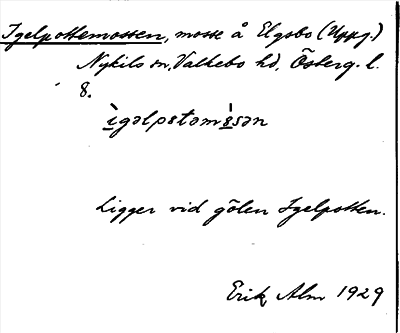 Igelpottemossen, mosse å Elgsbo (Uppg.)
Nykils sn, Valkebo hd, Österg. l.
8.
ìgəlpɵtəmɵ̀sən
Ligger vid gölen Igelpotten.
Erik Alm 1929